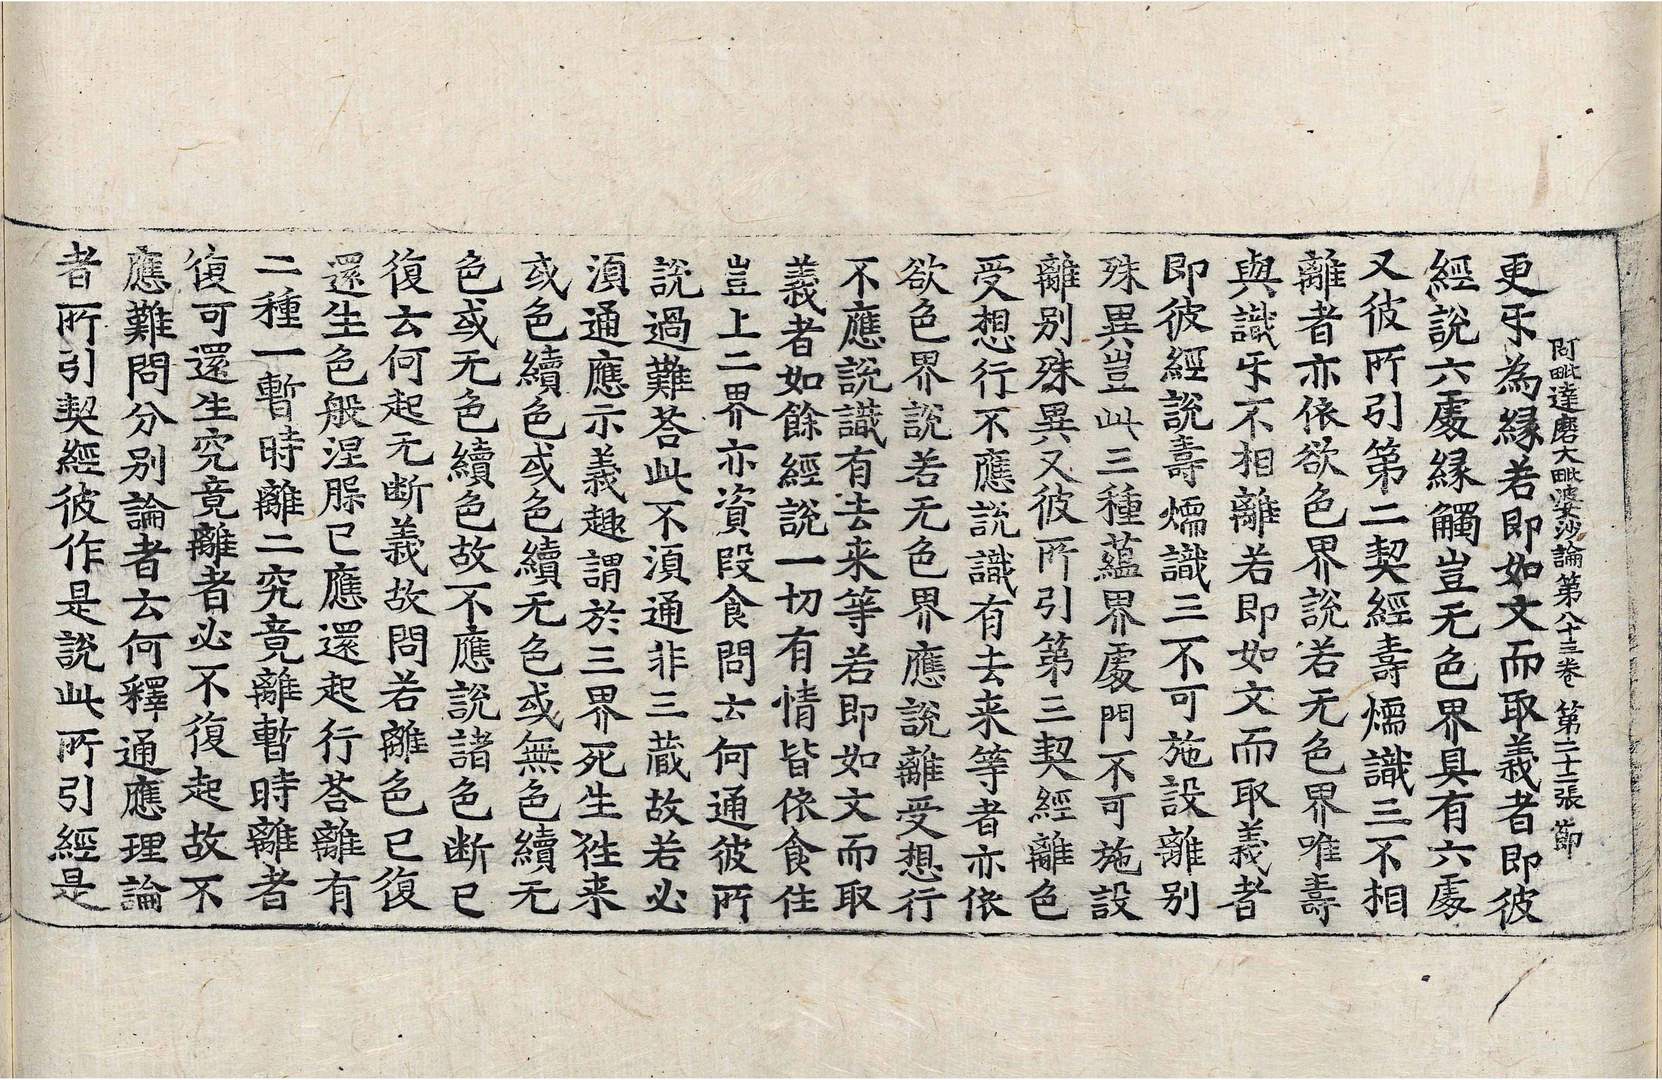 阿毗達磨大毗婆沙論第八十三卷　第二十二張　節
更乐為縁若即如文而取義者即彼
經說六處縁觸豈无色界具有六處
又彼所引第二契經壽煖識三不相
離者亦依欲色界說若无色界唯壽
與識乐不相離若即如文而取義者
即彼經說壽煖識三不可施設離别
殊異豈此三種蘊界處門不可施設
離别殊異又彼所引第三契經離色
受想行不應說識有去来等者亦依
欲色界說若无色界應說離受想行
不應說識有去来等若即如文而取
義者如餘經說一切有情皆依食住
豈上二界亦資段食問云何通彼所
說過難荅此不湏通非三蔵故若必
湏通應示義趣謂於三界死生徃来
或色續色或色續无色或無色續无
色或无色續色故不應說諸色断已
復云何起无断義故問若離色已復
還生色般涅槃已應還起行荅離有
二種一暫時離二究竟離暫時離者
復可還生究竟離者必不復起故不
應難問分别論者云何釋通應理論
者所引契經彼作是說此所引經是